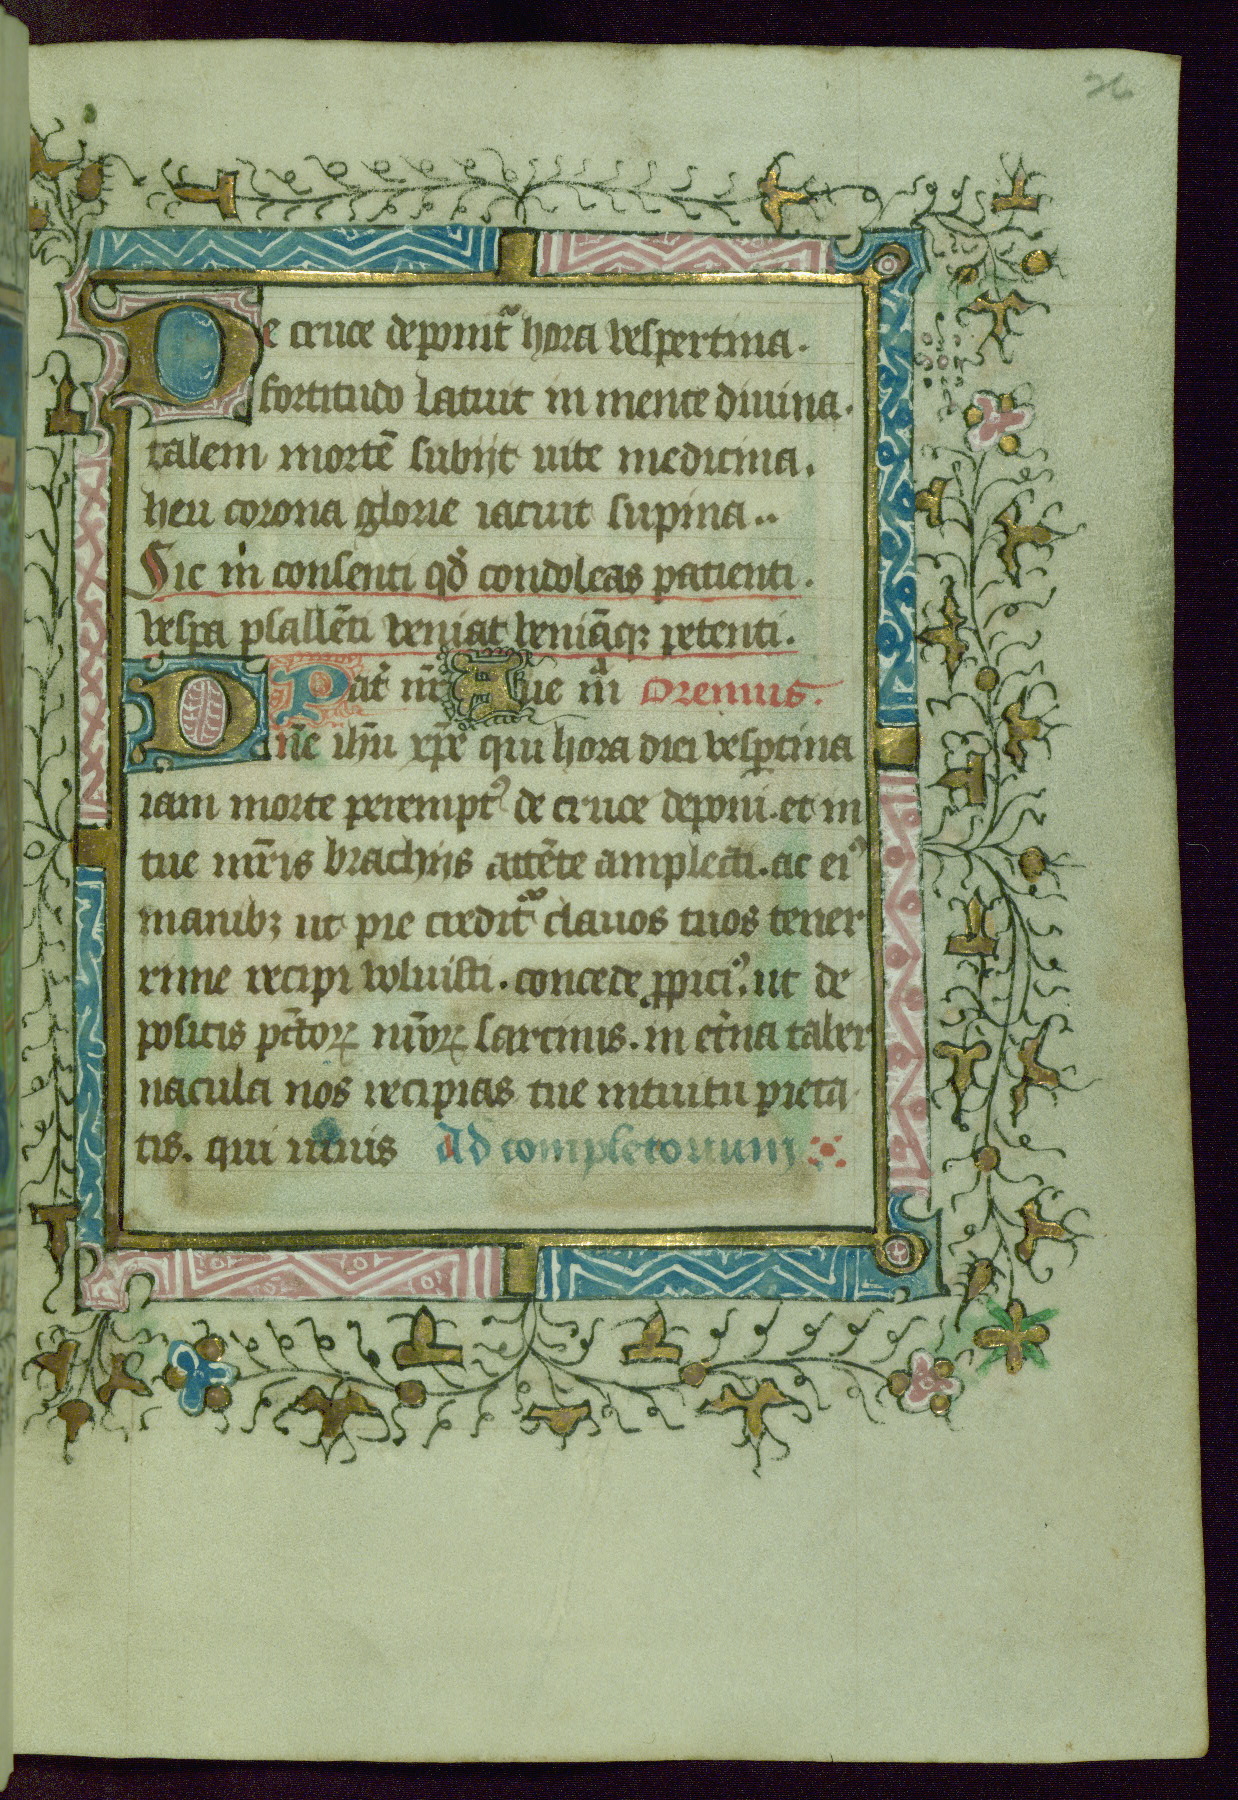 26
De cruce deponit̃ hora vespertina.
fortitudo latuit in mente diuina.
talem mortē subijt uite medicina.
heu corona glorie iacuit supina..
Sic in consenti qd̓ condoleas patienti.
vespa psallēti veniat veniāqꝫ petenti.
Pat̉ nr̄ Aue m̄ Oremus.
Dn̄e ihū xp̄e qui hora diei vesꝑtina
iam morte perempt᷒ de cruce deponi. et in
tue mr̄is brachijs attēte amplecti. ac ei᷒
manibꝫ ut pie credit̃ clauos tuos tener
rime recipi voluisti. concede ꝓpici᷒. ut de
positis pctōꝝ nr̄oꝝ sarcinis. in et̉na taber
nacula nos recipias tue intuitu pieta
tis. qui uiuis Ad completorium